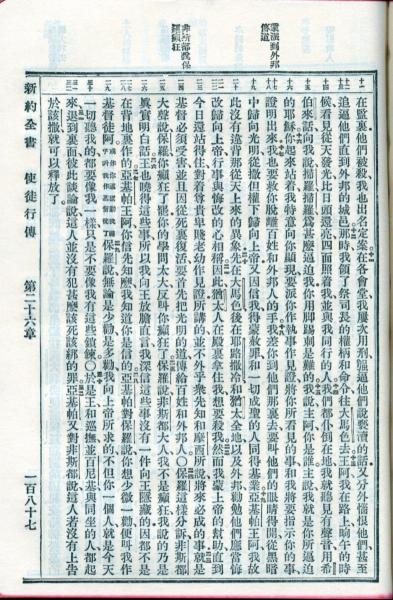 蒙派到外邦傳道
非斯都說保羅瘋狂
在監裏他們被殺我也出名定案在各會堂我屢次用刑逼他們說褻瀆的話又分外惱恨他們甚至
追逼他們直到外邦的城邑那時我領了祭司長的權柄和命令往大馬色去王阿我在路上晌午的時
候看見從天發光比日頭還亮四面照着我並與我同行的人我們都仆倒在地我就聽見有聲音用希
伯來話向我說掃羅掃羅爲甚麼逼迫我你用脚踢刺是難的我說主阿你是誰主說我就是你所逼迫
的耶穌你起來站着我特意向你顯現要派你作執事作見證將你所看見的事和我將要指示你的事
證明出來我也要救你脫離百姓和外邦人的手我差你到他們那裏去要叫他們的眼睛得開從黑暗
中歸向光明從撒但權下歸向上帝又因信我得蒙赦罪和一切成聖的人同得基業亞基帕王阿我故
此沒有違背那從天上來的異象先在大馬色後在耶路撒冷和猶太全地以及外邦勸勉他們應當悔
改歸向上帝行事與悔改的心相稱因此猶太人在殿裏拿住我想要殺我然而我蒙上帝的幫助直到
今日還站得住對着尊貴卑賤老幼作見證所講的並不外乎衆先知和摩西所說將來必成的事就是
基督必須受害並且因從死裏復活要首先把光明的道傳給百姓和外邦人○保羅這樣分訴非斯都
大聲說保羅你癲狂了罷你的學問太大反叫你癲狂了保羅說非斯都大人我不是癲狂我說的乃是
眞實明白話王也曉得這些事所以我向王放膽直言我深信這些事沒有一件向王隱藏的因都不是
在背地裏作的亞基帕王阿你信先知麼我知道你是信的亞基帕對保羅說你想少微一勸便叫我作
基督徒阿保羅說無論是少勸是多勸我向上帝所求的不但你一個人就是今天
一切聽我的都要像我一樣只是不要像我有這些鎖鍊○於是王和巡撫並百尼基與同坐的人都起
來退到裏面彼此談論說這人並沒有犯甚麼該死該綁的罪亞基帕又對非斯都說這人若沒有上告
於該撒就可以釋放了
新約全書 使徒行傳 第二十六章 一百八十七